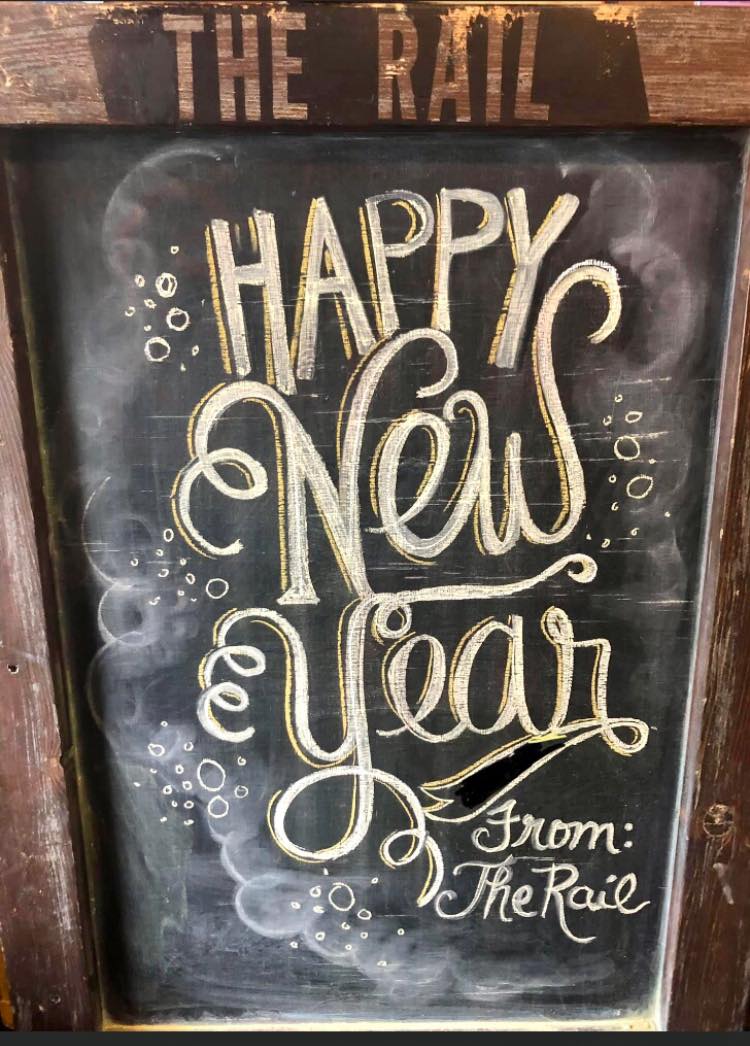 THE RAIL
HAPPY
New
Year
From:
The Rail